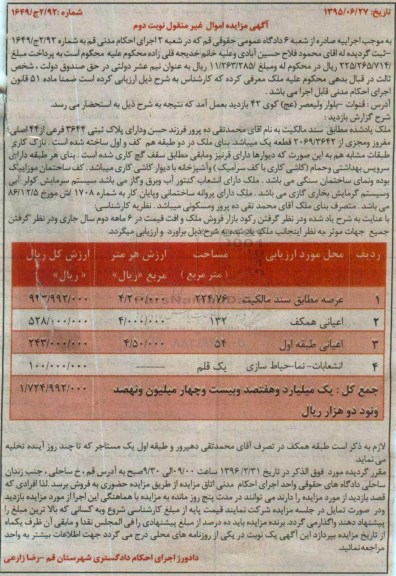 تاریخ: ۱۳۹۵/۰۶/۲۷ شماره: ۱۶۴۹/ج۲/۹۲
آگهی مزایده اموال غیر منقول نوبت دوم
به موجب اجراییه صادره از شعبه ۶ دادگاه عمومی حقوقی قم که در شعبه ۲ اجرای احکام مدنی قم به شماره ۱۶۴۹/ج۲/۹۲
-ثبت گردیده له آقای محمود فلاح حسین آبادی وعلیه خانم خدیجه قلی زاده محکوم علیه محکوم است به پرداخت مبلغ
۲۲۵/۲۶۵/۷۱۴/ ریال در محکوم له ومبلغ ۱۱/۲۶۳/۲۸۵/ ریال به عنوان نیم عشر دولتی در حق صندوق دولت ، شخص
ثالث در قبال بدهی محکوم علیه ملک معرفی کرده که کارشناس به شرح ذیل ارزیابی کرده است ضمنا ماده ۵۱ قانون
اجرای احکام مدنی قابل اجرا می باشد.
آدرس : قنوات -بلوار ولیعصر (عج) کوی ۴۲ بازدید بعمل آمد که نتیجه به شرح ذیل به استحضار می رسد.
شرح گزارش بازدید :
ملک یادشده مطابق سند مالکیت به نام آقای محمدتقی ده پرور فرزند حسن ودارای پلاک ثبتی ۳۶۴۴ فرعی از۴۴ اصلی،
مفروز ومجزی از ۲۰۶۹/۳۶۴۲ قطعه یک میباشد. بنای ملک در دو طبقه هم کف و اول ساخته شده است . نازک کاری
طبقات مشابه هم به این صورت که دیوارها دارای قرنیز ومابقی مطابق سقف گچ کاری شده است . بنای هر طبقه دارای
سرویس بهداشتی وحمام (کاشی کاری با کف سرامیک ) وآشپزخانه با دیوار کاشی کاری میباشد . کف ساختمان موزاییک
بوده ونمای ساختمان سنگی می باشد . ملک دارای انشعاب کنتور آب وبرق وگاز می باشد سیستم سرمایش کولر آبی
وسیستم گرمایش بخاری گازی می باشد . ملک دارای پروانه ساختمانی وپایان کار به شماره ۱۷۰۸ اش مورخ ۸۶/۱۲/۵
می باشد. متصرف بنای ملک آقای محمد تقی ده پرور ومسکونی میباشد . نظریه کارشناسی :
با عنایت به شرح یاد شده ودر نظر گرفتن رکود بازار فروش ملک و افت قیمت در ۶ ماهه دوم سال جاری ودر نظر گرفتن
جمیع جهات موثر به نظر اینجانب ملک یاد شده به شرح ذیل براورد و ارزیابی میگردد.
ردیف محل مورد ارزیابی مساحت (متر مربع) ارزش هر متر مربع «ریال» ارزش کل ریال «ریال»
۱ عرصه مطابق سند مالکیت ۲۲۴/۷۶ ۴/۲۰۰/۰۰۰ ۹۴۳/۹۹۲/۰۰۰
۲ اعیانی همکف ۱۳۲ ۴/۰۰۰/۰۰۰ ۵۲۸/۰۰۰/۰۰۰
۳ اعیانی طبقه اول ۵۴ ۴/۵۰/۰۰۰ ۲۴۳/۰۰۰/۰۰۰
۴ انشعابات- نما-حیاط سازی یک قلم ------ ۱۰۰/۰۰۰/۰۰۰
جمع کل : یک میلیارد وهفتصد وبیست وچهار میلیون ونهصد ۱/۷۲۴/۹۹۲/۰۰۰
ونود دو هزار ریال
لازم به ذکر است طبقه همکف در تصرف آقای محمدتقی دهپرور و طبقه اول یک مستاجر که تا چند روز آینده تخلیه
می نماید.
مقرر گردیده مورد فوق الذکر در تاریخ ۱۳۹۶/۲/۳۱ ساعت ۰۹/۰۰الی ۹/۳۰صبح به آدرس قم ، خ ساحلی ، جنب زندان
ساحلی دادگاه های حقوقی واحد اجرای احکام مدنی اتاق مزایده از طریق مزایده حضوری به فروش برسد. لذا افرادی که
قصد بازدید از مورد مزایده را دارند می توانند در مدت پنج روز مانده به مزایده با هماهنگی این اجرا از مورد مزایده بازدید
ودر صورت تمایل در جلسه مزایده شرکت نمایند قیمت پایه از مبلغ کارشناسی شروع وبه کسانی که بالا ترین مبلغ را
پیشنهاد دهند واگذارمی گردد. برنده مزایده باید ده درصد از مبلغ پیشنهادی را فی المجلس نقدا و مابقی آن ظرف یکماه
از تاریخ مزایده بپردازد این آگهی یک نوبت در یکی از روزنامه های محلی درج می گردد جهت اطلاعات بیشتر به واحد
مراجعه نمائید.
دادورز اجرای احکام دادگستری شهرستان قم -رضا زارعی